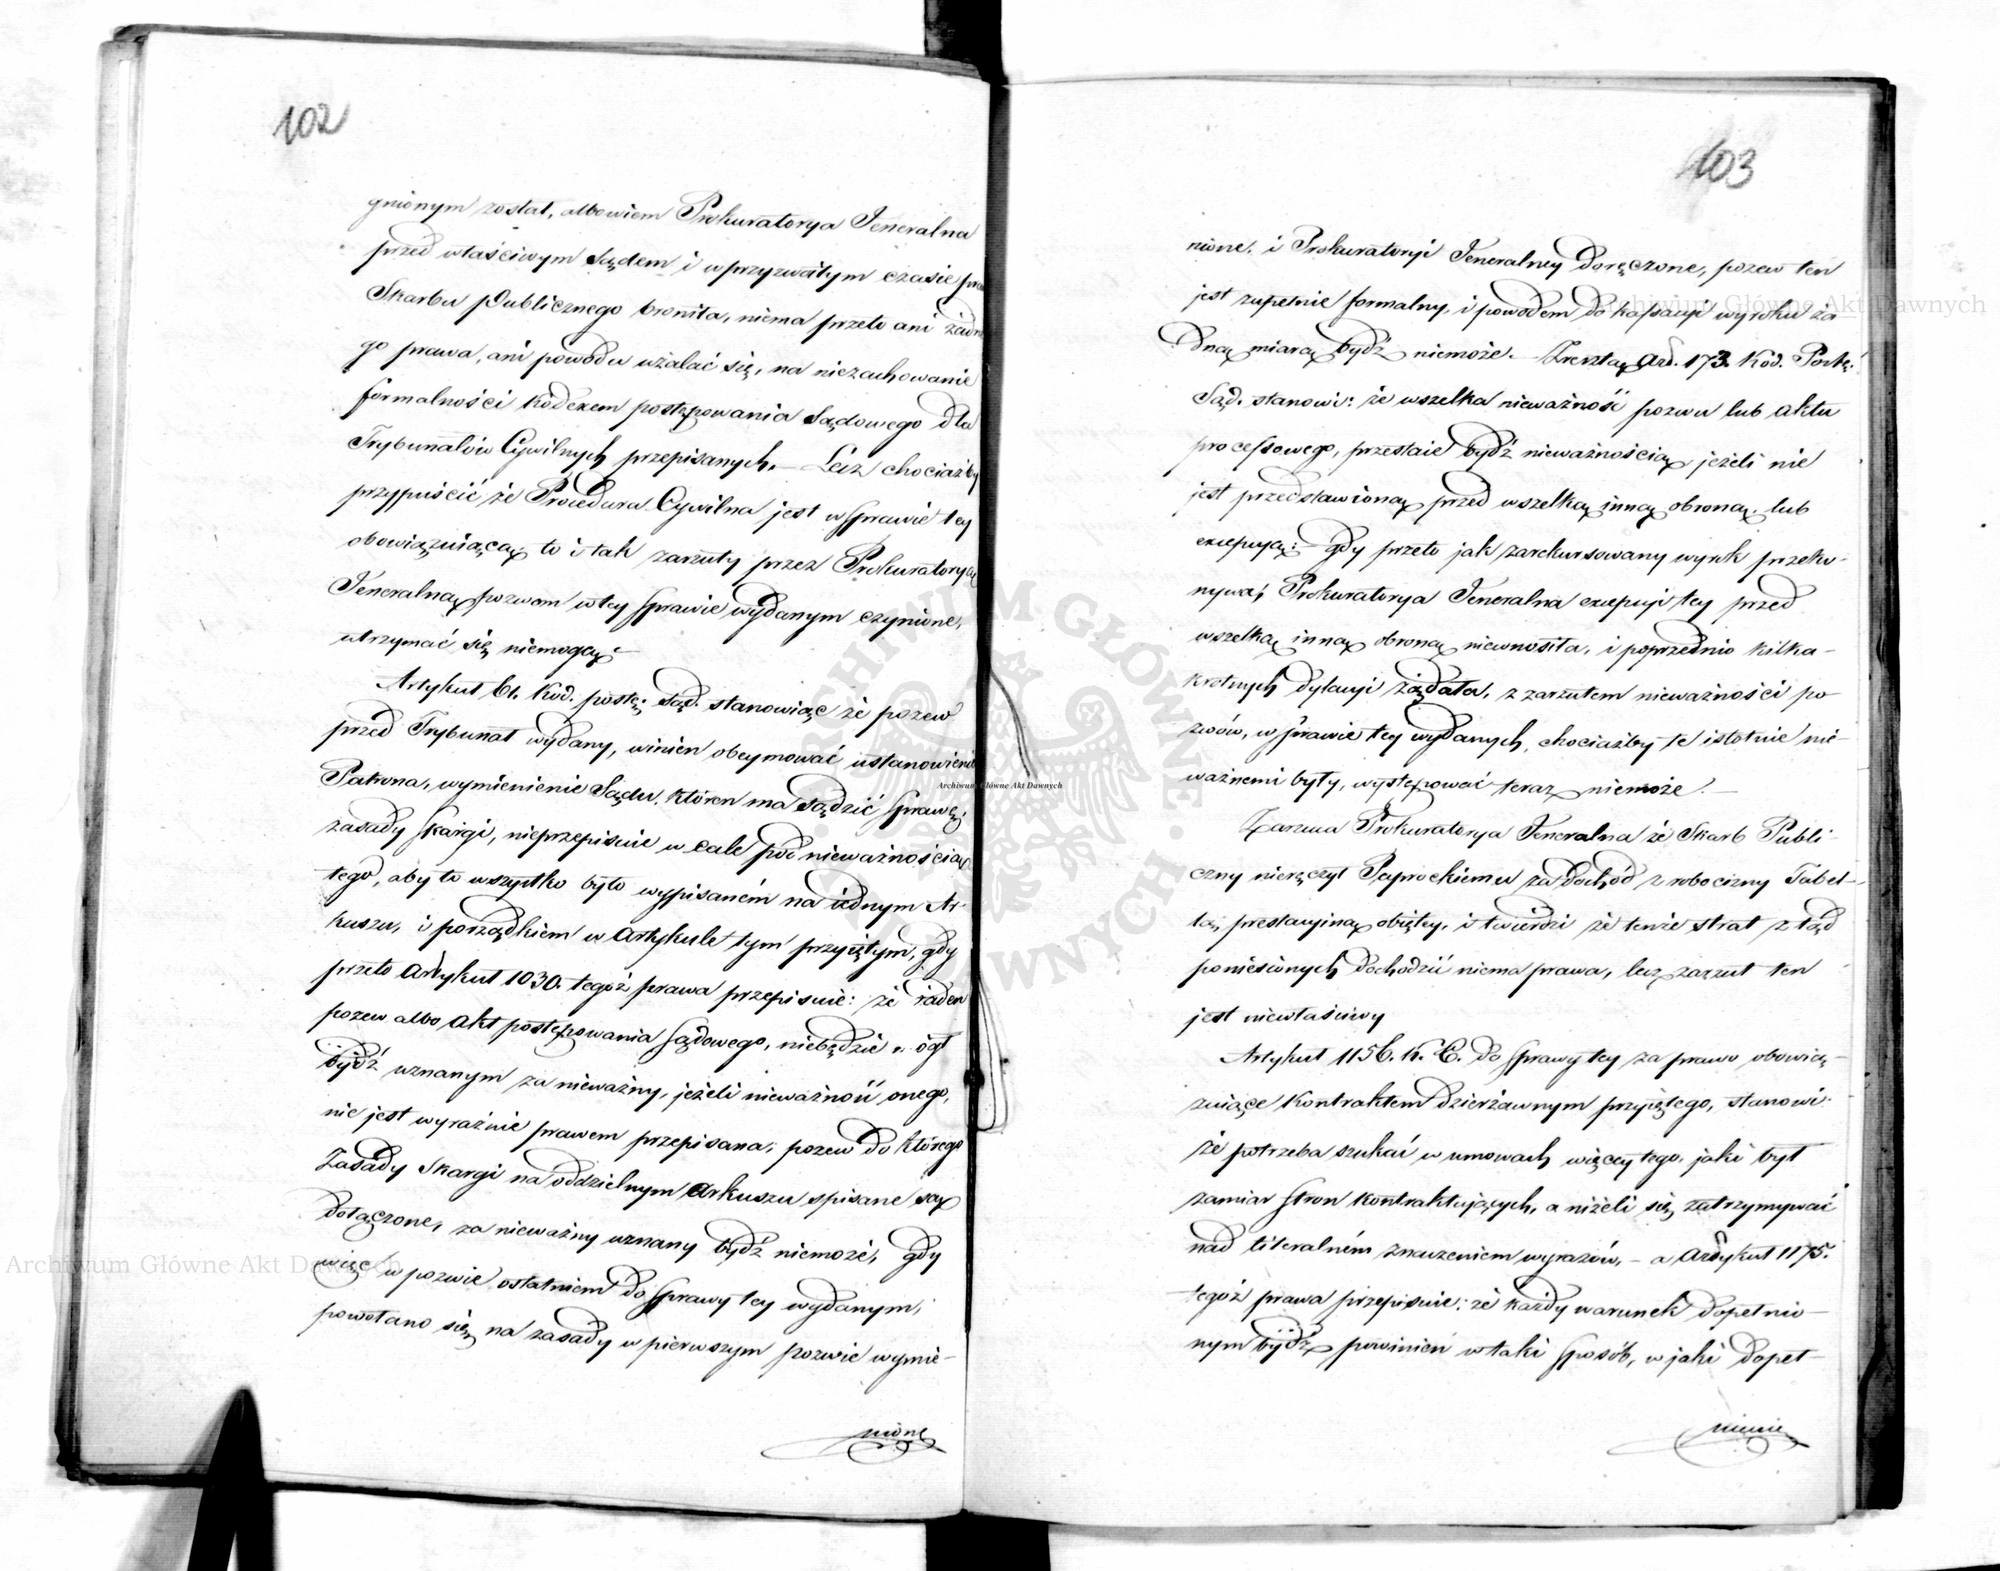 102
gnionym został, albowiem Prokuratorya Jeneralna
przed właściwym Sądem i w przyzwoitym czasie praw
Skarbu Publicznego broniła, niema przeto ani żadne
go prawa, ani powodu użalać się, na niezachowanie
formalności kodexem postępowania Sądowego dla
Trybunałów Cywilnych przepisanych. — Lecz chociażby
przypuścić że Procedura Cywilna jest w Sprawie tey
obowiązuiącą, to i tak zarzuty przez Prokuratoryą
Jeneralną pozwom w tey Sprawie wydanym czynione,
utrzymać się niemogą. —
Artykuł 61. Kod. postę. Sąd. stanowiąc że pozew
przed Trybunał wydany, winien obeymować ustanowienie
Patrona, wymienienie Sądu, któren ma Sądzić Sprawę,
zasady Skargi, nieprzepisuie w cale pod nieważnością
tego, aby to wszystko było wypisaném na iednym Ar-
kuszu, i porządkiem w Artykule tym przyiętym, gdy
przeto Artykuł 1030. tegoż prawa przepisuie: że żaden
pozew albo Akt postępowania Sądowego, niebędzie mógł
bydź uznanym za nieważny, jeżeli nieważność onego,
nie jest wyraźnie prawem przepisana; pozew do którego
Zasady Skargi na oddzielnym Arkuszu spisane są
dołączone, za nieważny uznany bydź niemoże, gdy
więc w pozwie ostatniem do Sprawy tey wydanym,
powołano się na zasady w pierwszym pozwie wymie-
nione
103
nione, i Prokuratoryi Jeneralney doręczone, pozew ten
jest zupełnie formalny, i powodem do kassacyi wyroku ża-
dną miarą bydź niemoże. — Zresztą Art. 173. Kod. Postę.
Sąd. stanowi: że wszelka nieważność pozwu lub aktu
processowego, przestaie bydź nieważnością jeżeli nie
jest przedstawioną przed wszelką inną obroną, lub
excepcyą: — gdy przeto jak zarekursowany wyrok przeko-
nywa, Prokuratorya Jeneralna excepcyi tey przed
wszelką inną obroną niewnosiła, i poprzednio kilka-
krotnych dylacyi żądała, z zarzutem nieważności po
zwów, w Sprawie tey wydanych, chociażby te istotnie nie-
ważnemi były, występować teraz niemoże. —
Zarzuca Prokuratorya Jeneralna że Skarb Publi-
czny nieręczył Paprockiemu za dochód z robocizny Tabel-
lą prestacyiną obiętey, i twierdzi że tenże strat z tąd
poniesionych dochodzić niema prawa, lecz zarzut ten
jest niewłaściwy
Artykuł 1156. K. C. do Sprawy tey za prawo obowią-
zuiące Kontraktem dzierżawnym przyiętego, stanowi:
że potrzeba szukać w umowach więcey tego, jaki był
zamiar Stron kontraktujących, a niżeli się zatrzymywać
nad literalném znaczeniem wyrazów, — a Artykuł 1175.
tegoż prawa przepisuie: że każdy warunek dopełnio-
nym bydź powinien w taki Sposób, w jaki dopeł-
nienie
Archiwum Główne Akt Dawnych
Archiwum Główne Akt Dawnych
Archiwum Główne Akt Dawnych
ARCHIWUM GŁÓWNE AKT DAWNYCH